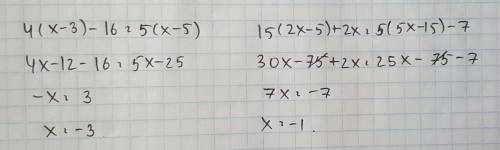 4(x-3)-16=5(x-5)
4x-12-16=5x-25
-x=3
x=-3
15(2x-5)+2x=5(5x-15)-7
30x-75+2x=25x-75-7
7x=-7
x=-1.